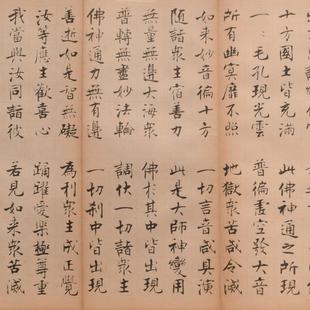 十方國土皆充滿 此佛神通之所現
一一毛孔現光雲 普徧虛空發大音
所有幽冥靡不照 地獄衆苦咸令滅
如來妙音徧十方 一切言音咸具演
隨諸衆生宿善力 此是大師神變用
無量無邊大海衆 佛於其中皆出現
普轉無盡妙法輪 調伏一切諸衆生
佛神通力無有邊 一切剎中皆出現
善逝如是智無礙 為利衆生成正覺
汝等應生歡喜心 踊躍愛樂極尊重
我當與汝同詣彼 若見如來衆苦滅